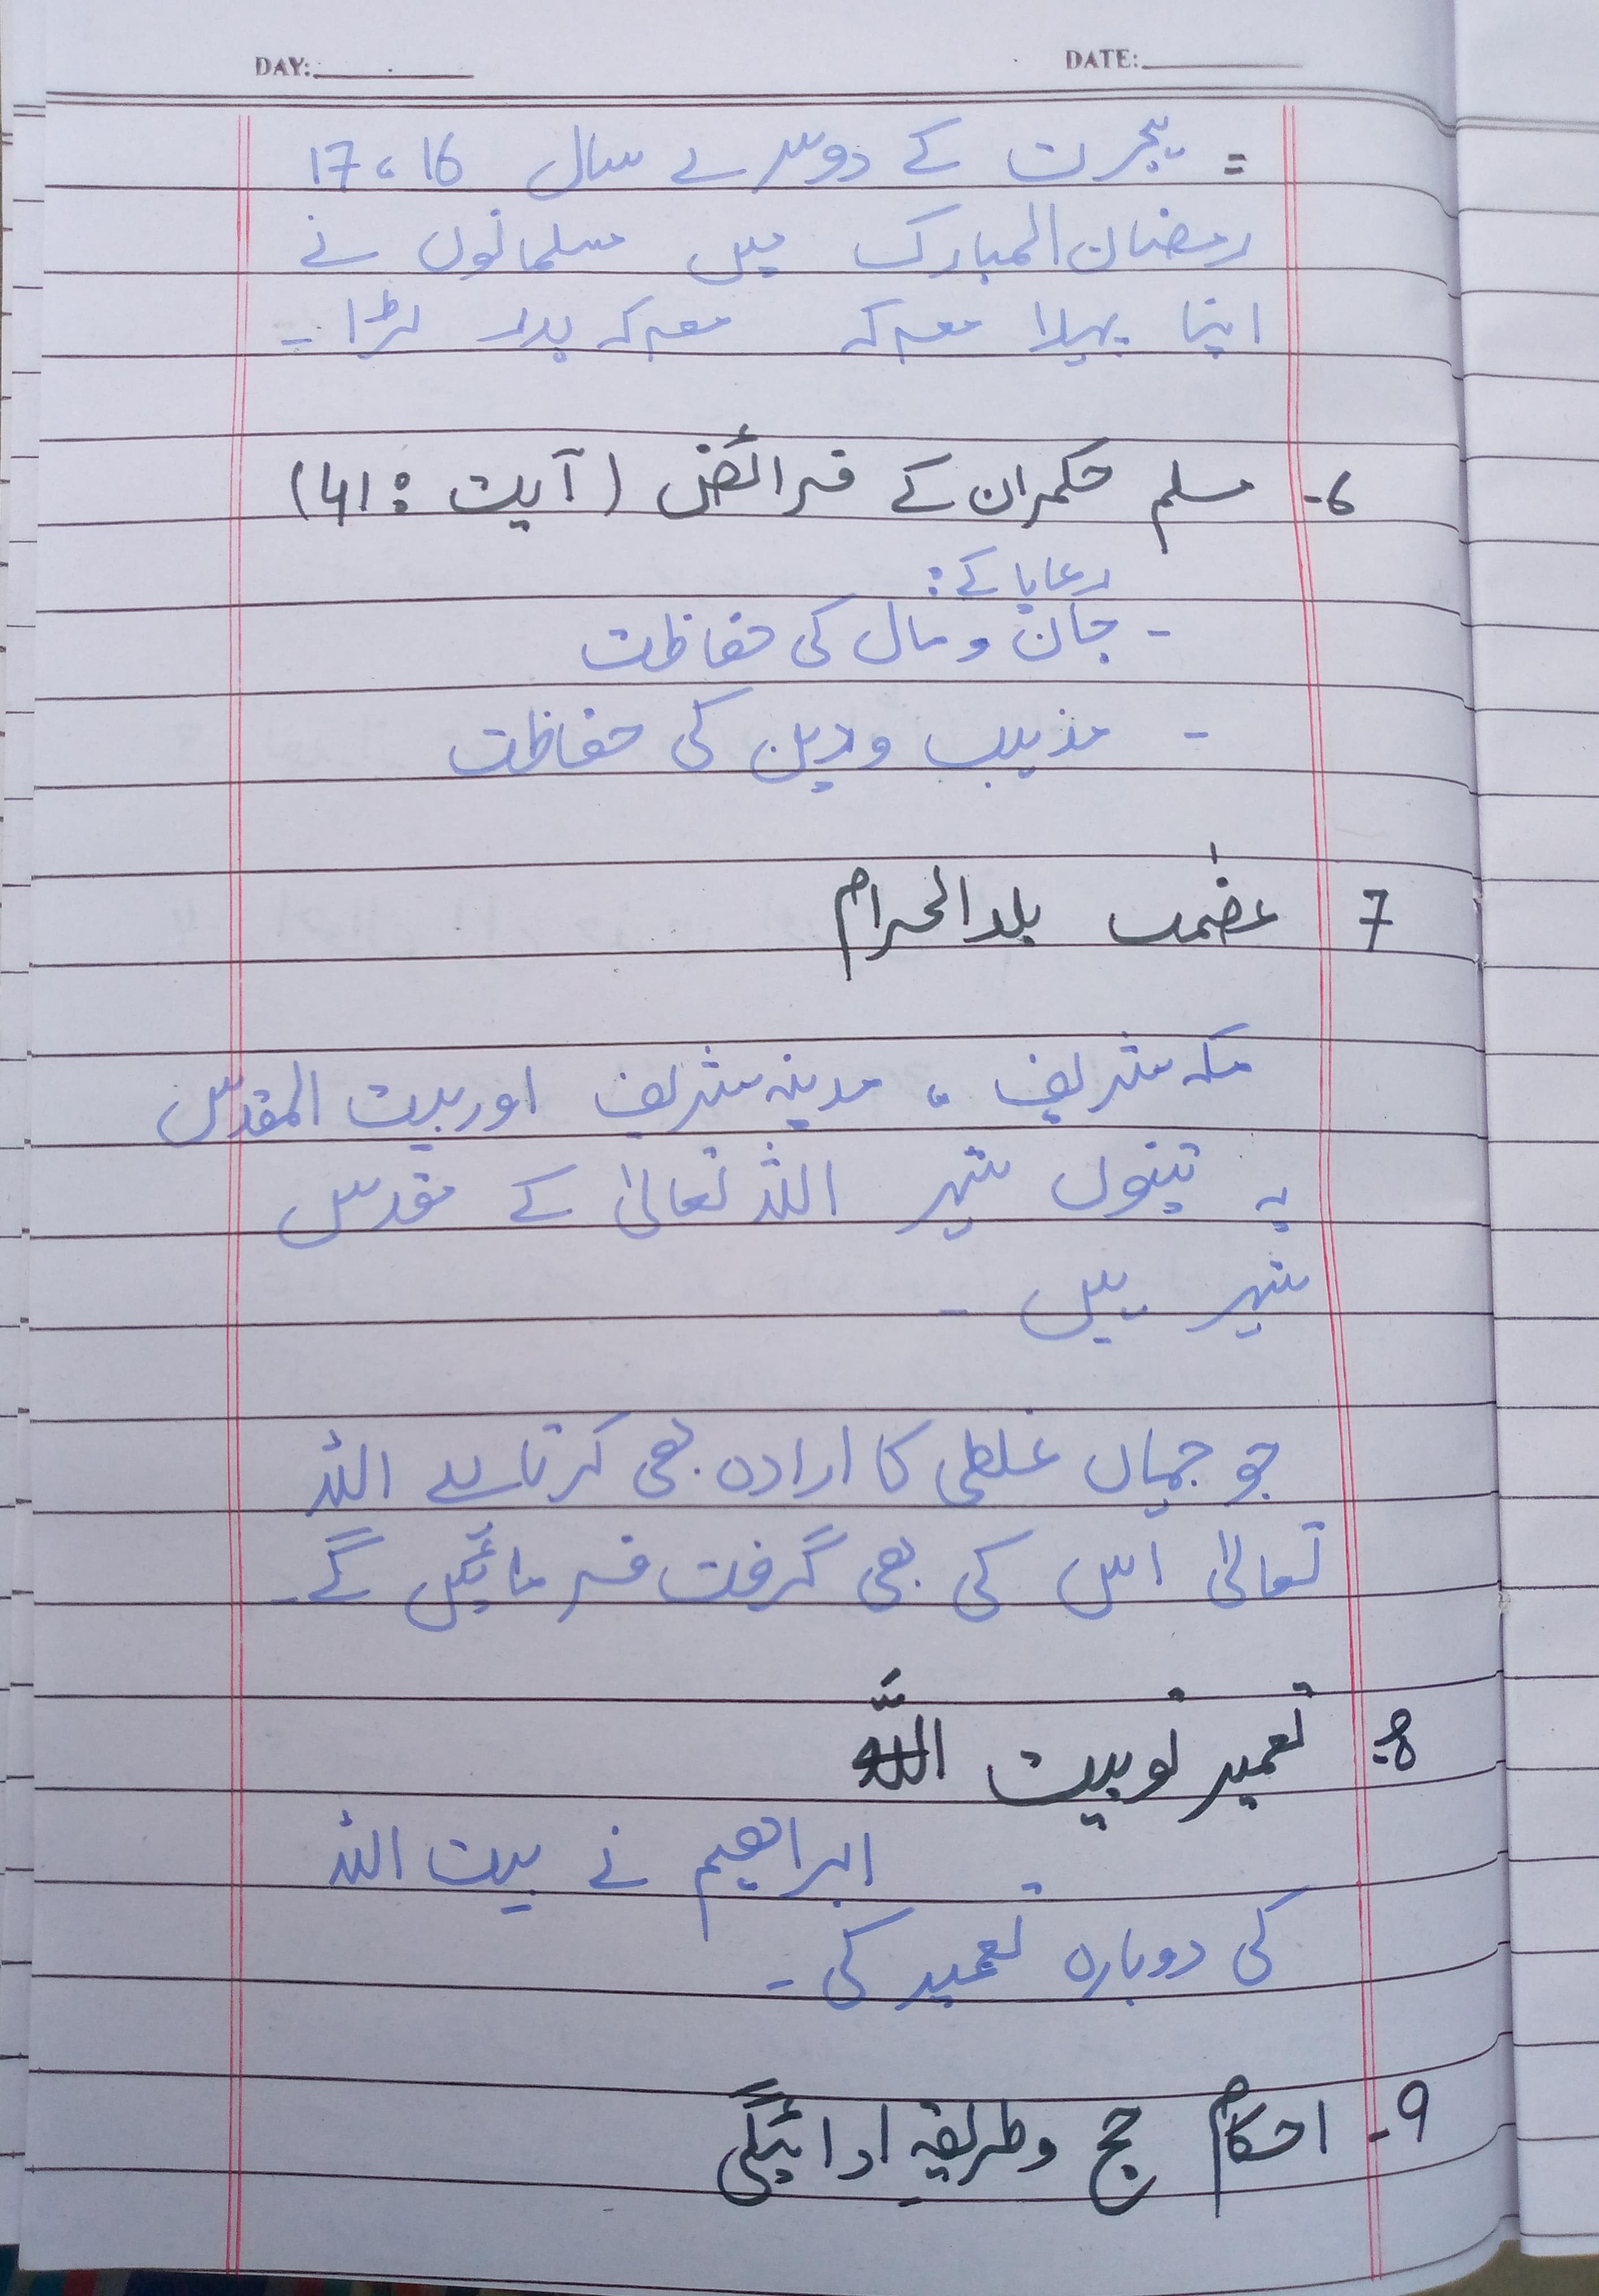 DAY: DATE:
= ہجرت کے دوسرے سال 16، 17
رمضان المبارک میں مسلمانوں نے
اپنا پہلا معرکہ معرکہ بدر لڑا ۔
6- مسلم حکمران کے فرائض (آیت : 41)
رعایا کے :
- جان و مال کی حفاظت
- مذہب و دین کی حفاظت
7 عضمت بلد الحرام
مکہ شریف ، مدینہ شریف اور بیت المقدس
یہ تینوں شہر اللہ تعالیٰ کے مقدس
شہر ہیں ۔
جو جہاں غلطی کا ارادہ بھی کرتا ہے اللہ
تعالیٰ اس کی بھی گرفت فرمائیں گے ۔
8- تعمیر نو بیت اللہ
ابراھیم نے بیت اللہ
کی دوبارہ تعمیر کی ۔
9- احکام حج و طریقہِ ادائیگی